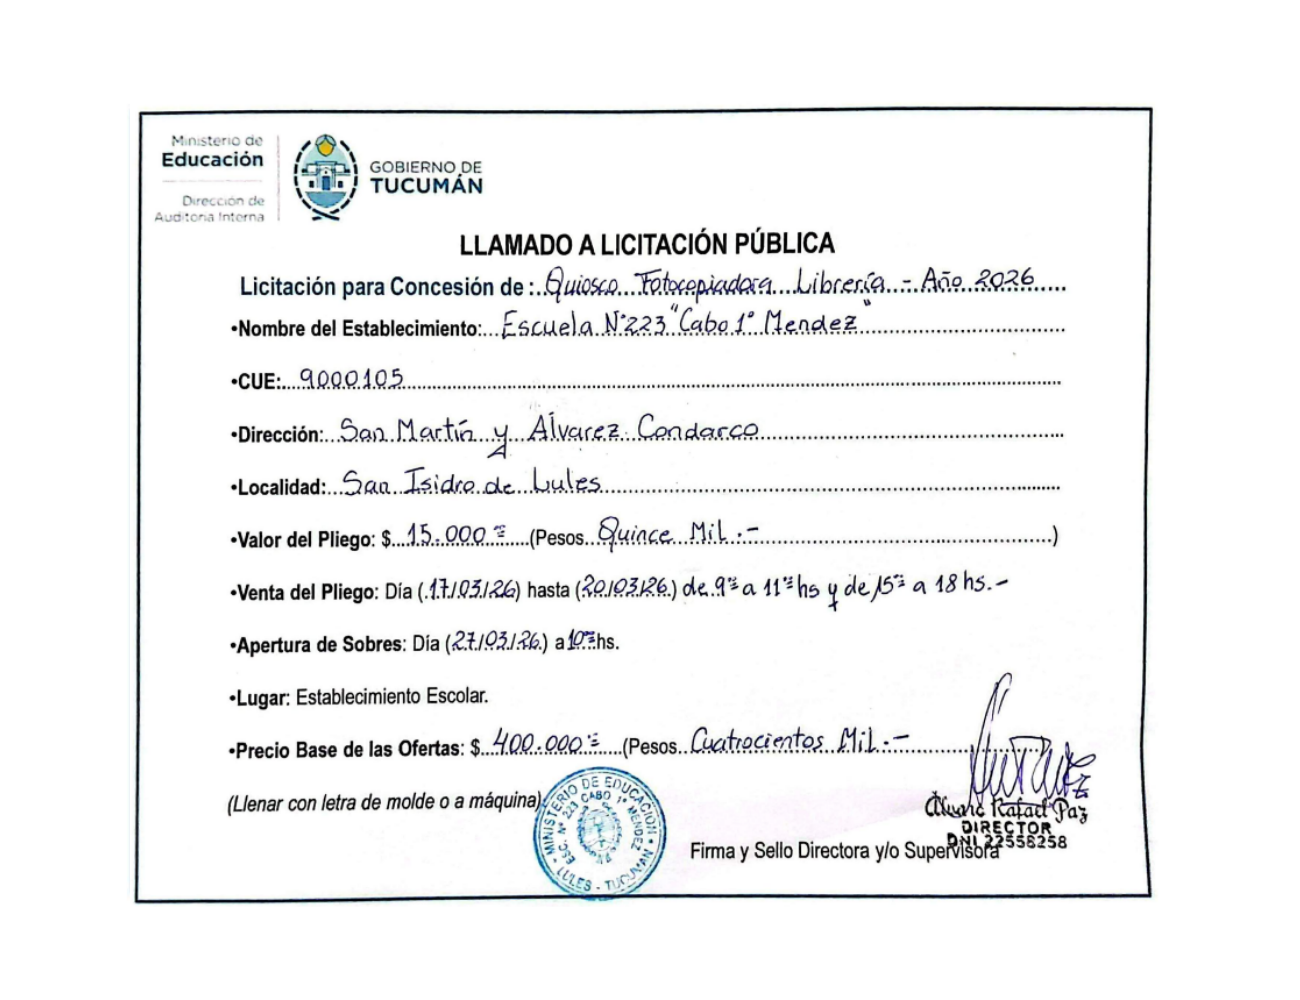 Ministerio de
Educación
Dirección de
Auditoria Interna
GOBIERNO DE
TUCUMÁN
LLAMADO A LICITACIÓN PÚBLICA
Licitación para Concesión de : Quiosco Fotocopiadora Librería - Año 2026
•Nombre del Establecimiento: Escuela N°223 "Cabo 1° Mendez"
•CUE: 9000105
•Dirección: San Martín y Alvarez Condarco
•Localidad: San Isidro de Lules
•Valor del Pliego: $ 15.000 (Pesos Quince Mil.-)
•Venta del Pliego: Día (17/03/26) hasta (20/03/26) de 9 a 11 hs y de 15 a 18 hs.-
•Apertura de Sobres: Día (27/03/26) a 10 hs.
•Lugar: Establecimiento Escolar.
•Precio Base de las Ofertas: $ 400.000 (Pesos Cuatrocientos Mil.-
(Llenar con letra de molde o a máquina)
MINISTERIO DE EDUCACIÓN
ESC. N° 223 CABO 1° MENDEZ
LULES - TUCUMÁN
Rafael Paz
DIRECTOR
DNI 22558258
Firma y Sello Directora y/o Supervisora